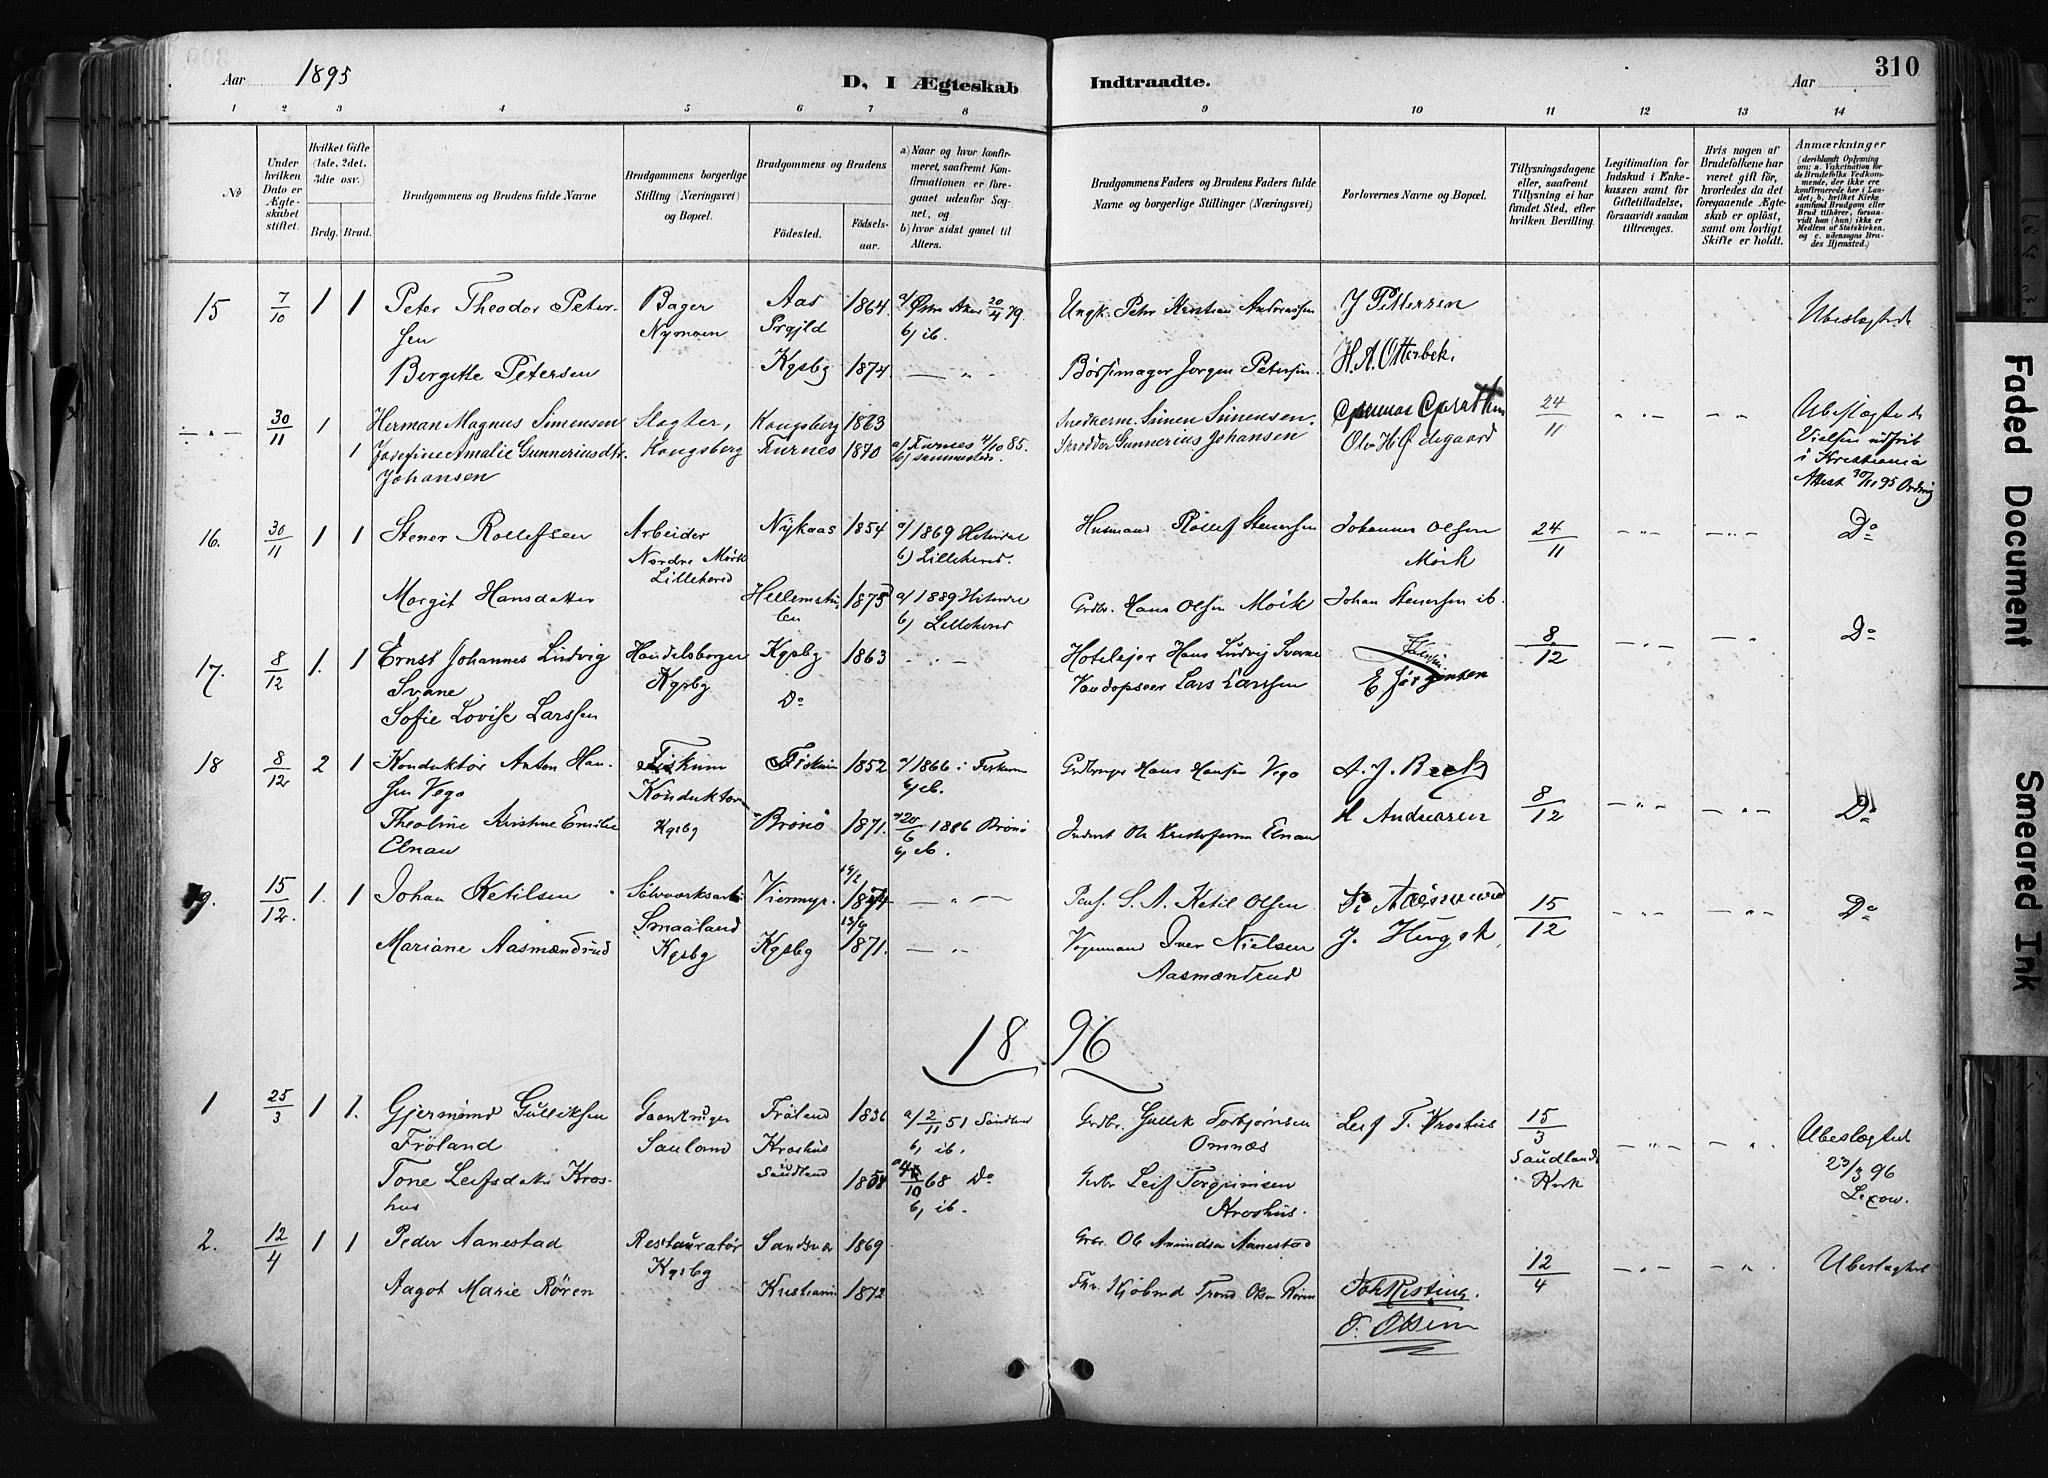 310
Aar 1895
D. I Ægteskab Indtraadte.
Aar
1 2 3 4 5 6 7 8 9 10 11 12 13 14
No
Under hvilken Dato er Ægteskabet stiftet.
Hvilket Gifte (1ste, 2det, 3die osv.)
Brdg. Brud.
Brudgommens og Brudens fulde Navne
Brudgommens borgerlige Stilling (Næringsvei) og Bopæl.
Brudgommens og Brudens
Fødested. Fødselsaar.
a) Naar og hvor konfirmeret, saafremt Konfirmationen er foregaaet udenfor Sognet, og
b) hvor sidst gaaet til Alters.
Brudgommens Faders og Brudens Faders fulde Navne og borgerlige Stillinger (Næringsvei)
Forlovernes Navne og Bopæl.
Tillysningsdagene eller, saafremt Tillysning ei har fundet Sted, efter hvilken Bevilling.
Legitimation for Indskud i Enkekassen samt for Giftetilladelse, forsaavidt saadan tiltrænges.
Hvis nogen af Brudefolkene har været gift før, hvorledes da det foregaaende Ægteskab er opløst, samt om lovligt Skifte er holdt.
Anmærkninger
(deriblandt Oplysning om: a. Vakcination for de Brudefolks Vedkommende, der ikke ere konfirmerede her i Landet; b. hvilket Kirkesamfund Brudgom eller Brud tilhører, forsaavidt han (hun) ikke er Medlem af Statskirken, og c. udensogns Brudes Hjemsted.)
15 7/10 1 1 Peter Theodor Petersen Bager Nymoen Aas Prgjld 1864 a/ Østre Aker 20/4 79. b) ib. Ungk. Peter Kristian Andreassen J Pettersen Ubeslægtede
Birgitte Petersen Kgsbg 1874 — „ — Børsemager Jørgen Petersen H. A. Otterbek.
— „ — 30/11 1 Herman Magnus Simensen Slagter, Kongsberg 1863 Snedkerm. Simen Simensen. 24/11 — „ — — „ — Ubeslægtede
1 Josefine Amalie Gunneriusdtr. Johansen Kongsberg Furnes 1870 a/ Furnes 4/10 85. b) sammesteds Skrædder Gunnerius Johansen Ole H. Ødegaard Vielsen udført i Kristiania Attest 30/11 95
16. 30/11 1 1 Stener Rollefsen Arbeider Nordre Mørk Lillehered Nykaas 1854 a/ 1869 Hiterdal b) Lillehered. Husmand Rollef Stenersen Johannes Olsen Mørk 24/11 — „ — — „ — Do
Margit Hansdatter 1875 a/ 1889 Hiterdal b) Lillehered Grdbr. Hans Olsen Mørk Johan Stenersen ib.
17. 8/12 1. 1 Ernst Johannes Ludvig Svane Handelsborger Kgsbg Kgsbg 1863 — „ — Hotelejer Hans Ludvig Svane E Jørgensen 8/12 — „ — — „ — Do
Sofie Lovise Larssen Do Vandopseer Lars Larssen
18 8/12 2 1 Konduktør Anton Hansen Vego Fiskum Konduktør Kgsbg Fiskum 1852 a/ 1866 i Fiskum b) ib. Grdbruger Hans Hansen Vego A. J. Beck 8/12 — „ — — „ — Do
Theoline Kristine Emilie Elnan Brønø 1871. a/ 20/6 1886 Brønø b) ib. Inderst Ole Kristofersen Elnan H Andreasen
19. 15/12. 1. 1 Johan Ketilsen Sølvværksarb. Smaaland Kgsbg Viermyr. 19/2 — „ — Pens. S. A. Ketil Olsen 15/12 — „ — — „ — Do
Mariane Aasmændrud Kgsbg 13/9 1871. — „ — Vognmand Iver Nielsen Aasmændrud
1896
1 25/3 1 1. Gjermund Gulliksen Frøland Gaardbruger Sauland Frøland 1836 a/ 2/11 51 Saudland b) ib. Grdbr. Gullik Torbjørnsen Omnæs Leif T. Kroshus 15/3 Saudlands Kirk — „ — — „ — Ubeslægtede 23/3 96 Lexow.
Tone Leifsdatter Kroshus Kroshus Saudland 68 Do b) ib. Grdbr Leif Torgrimsen Kroshus.
2. 12/4 1 1 Peder Aanestad Restauratør Kgsbg Sandsvær 1869 Grbr. Ole Amundsen Aanestad 12/4 — „ — — „ — Ubeslægtet
Aagot Marie Røren Kristiania 1872 Trond Olsen Røren O. Olsen
Faded Document
Smeared Ink